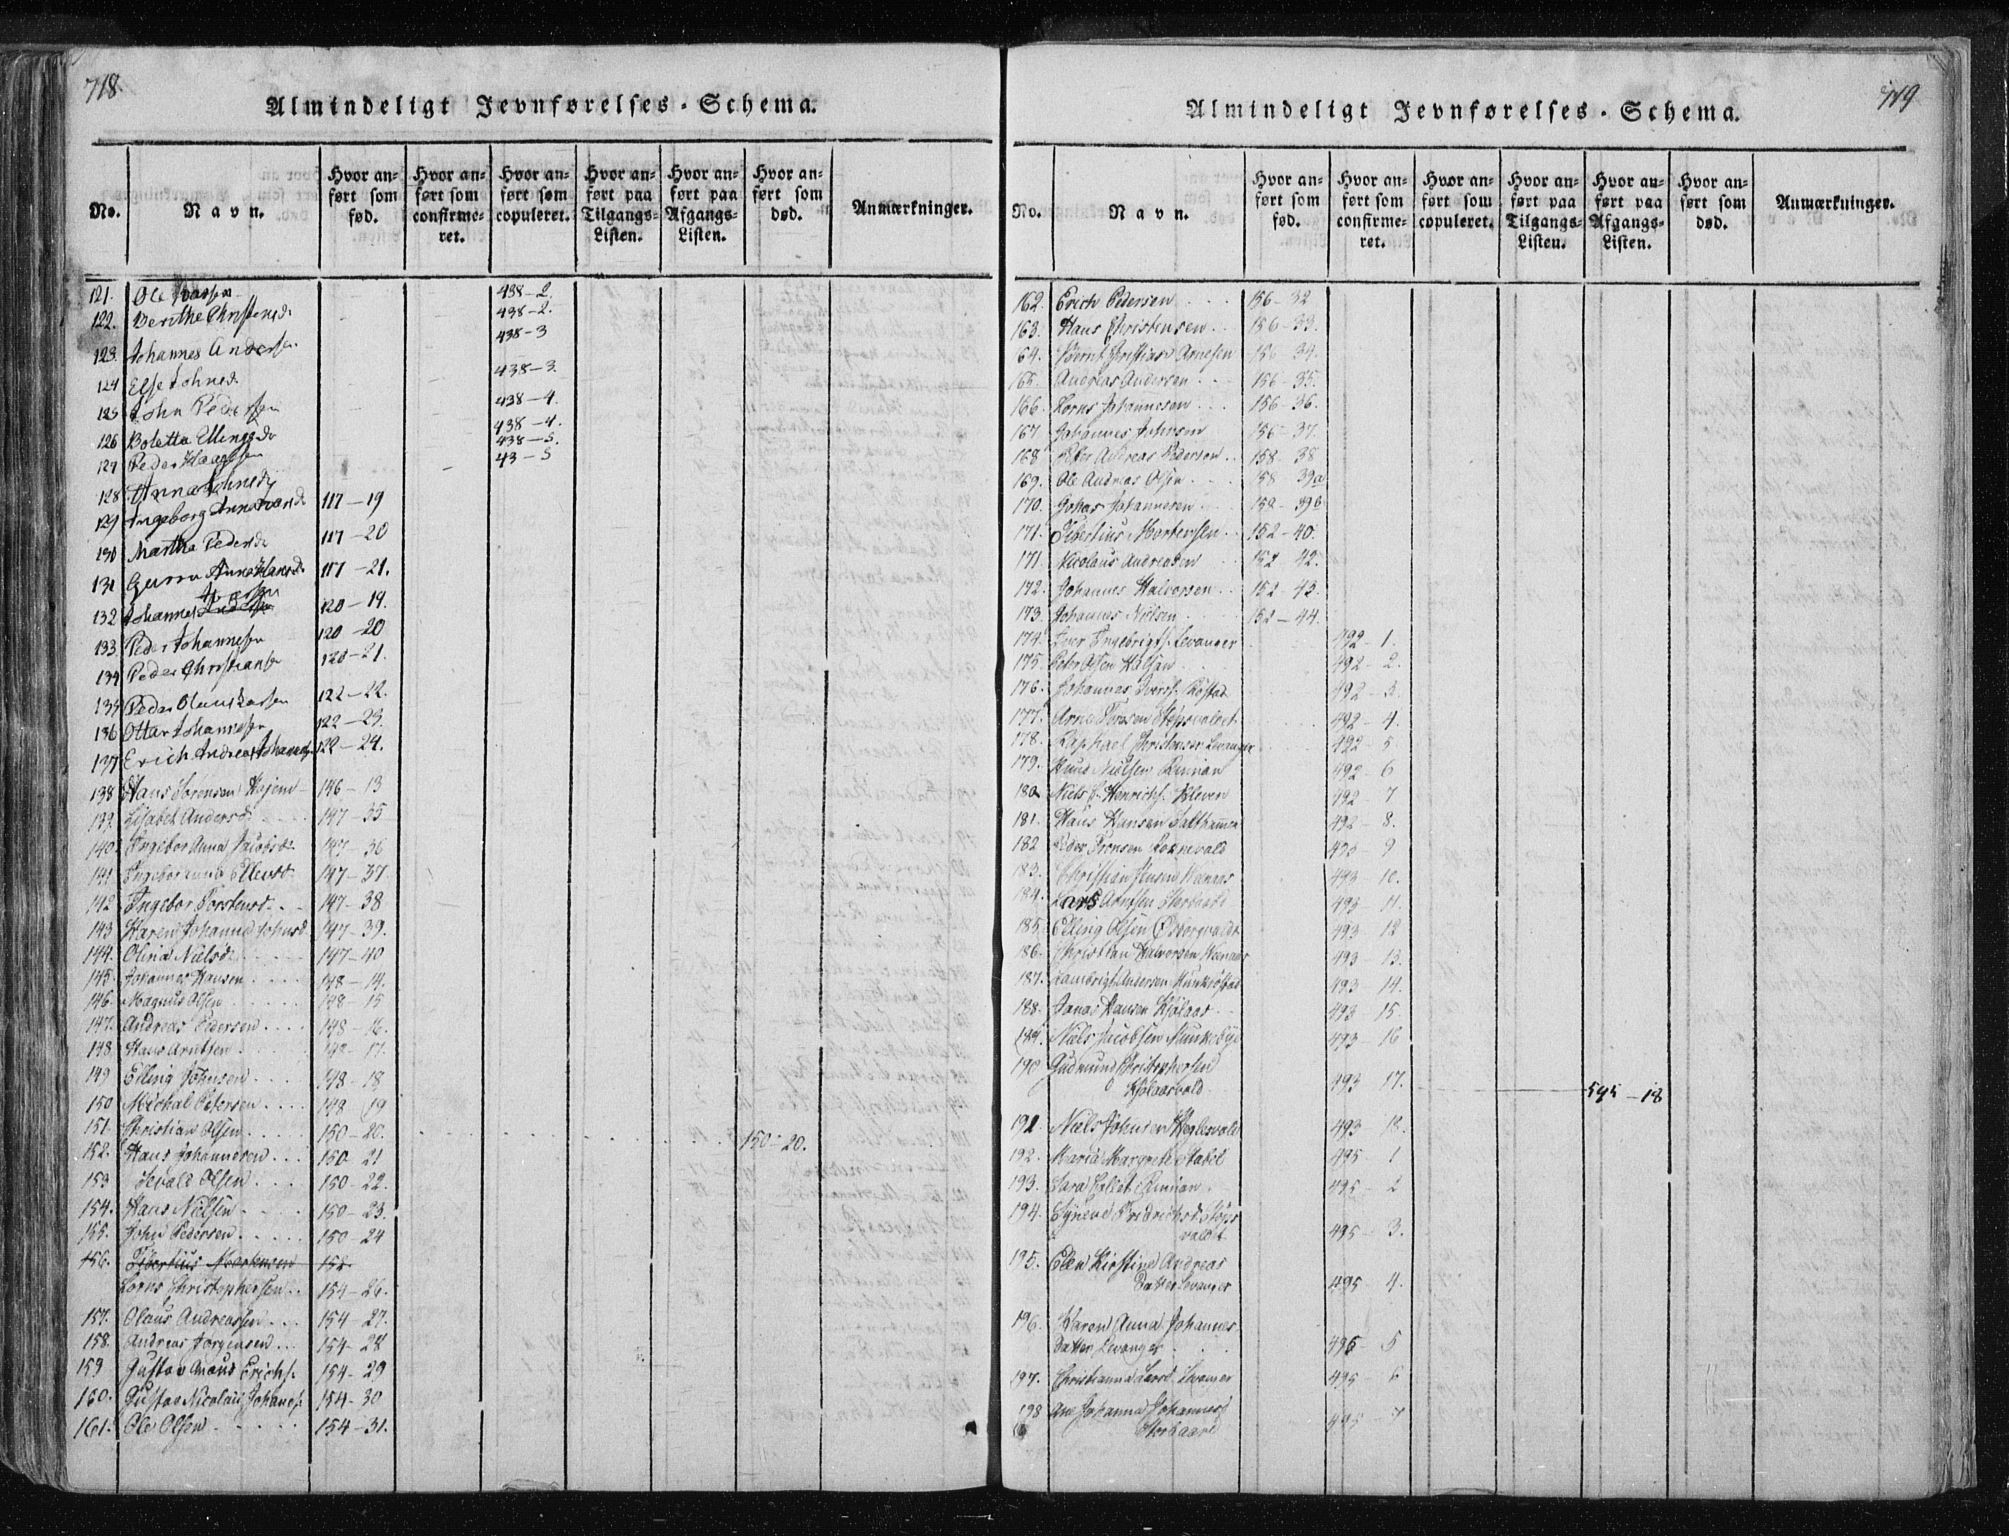 718.
Almindeligt Jevnførelses-Schema.
No. | Navn. | Hvor anført som fød. | Hvor anført som confirmeret. | Hvor anført som copuleret. | Hvor anført paa Tilgangs-Listen. | Hvor anført paa Afgangs-Listen. | Hvor anført som død. | Anmærkninger.
121. Ole 438-2.
122. Berithe Christensd. 438-2.
123. Johannes Andersen 438-3
124 Else Johnsd. 438-3.
125 John Pedersen 438-4.
126 Boletta Ellingsd. 438-4.
127 Peder 438-5.
128 Anna Johnsd. 43-5
129 Ingeborg Anna 117-19
130 Martha Pedersd. 117-20
131 Anna Hansd. 117-21.
132 Johannes 120-19.
133 Peder Johannesen 120-20
134 Peder Christiansen 120-21.
135 Peder Olaus 122-22.
136 Ottar Johannesen 122-23.
137 Erich Andreas 122-24.
138 Hans Sørensen Hojem 146-13
139. Lisabet Andersd. 147-35
140. Ingebor Anna Jacobsd. 147-36
141 Ingebor Anna Ellensd. 147-37
142 Ingebor Torstensd. 147-38
143 Karen Johanna Johnsd. 147-39.
144. Olina Nielsd. 147-40
145. Johannes Hansen 148-14.
146. Magnus Olsen 148-15
147. Andreas Pedersen 148-16.
148. Hans Arntsen 148-17.
149 Elling Johnsen 148-18
150 Michal Petersen 148 19
151. Christian Olsen 150-20. 150-20.
152. Hans Johannesen 150 21
153 Sevald Olsen 150-22.
154. Hans Nielsen 150-23.
155. John Pedersen 150-24
156. Tibertius Mortensen 152
Lorns Christophersen 154-26.
157. Olaus Andreassen 154-27.
158. Andreas Jørgensen 154-28
159 Gustav Erichs. 154-29
160. Gustav Nicolaus Johans. 154-30
161. Ole Olsen 154-31.
719
Almindeligt Jevnførelses-Schema.
No. | Navn. | Hvor anført som fød. | Hvor anført som confirmeret. | Hvor anført som copuleret. | Hvor anført paa Tilgangs-Listen. | Hvor anført paa Afgangs-Listen. | Hvor anført som død. | Anmærkninger.
162. Erich Pedersen 156-32
163. Hans Christensen 156-33.
64. Bernt Christian Arnesen 156 34.
165. Andreas Andersen 156-35.
166. Lorns Johannesen 156-36.
167 Johannes Johnsen 156-37.
168 Peter Andreas Pedersen 158 38
169. Ole Andreas Olsen 158 39a
170. Johan Johannesen 158-39b
171. Tibertius Mortensen 152-40.
171. Nicolaus Andreasen 152 42.
172. Johannes Halvorsen 152-43.
173. Johannes Nielsen 152-44.
174. Iver Ingebrigts. Levanger 492-1.
175. Peter Olsen Halsan 492-2.
176. Johannes Ivers. Røstad 492-3.
177. Arne 492-4.
178. Raphael Christensen Levanger 492-5
179. Knud Nielsen Rinnan 492-6
180. Niels Henrichs. Kleven 492-7
181. Hans Hansen Salthammer 492-8.
182 Peder 9
183. Christian Jensen 493 10.
184. Lars Arntsen 493 11.
185. Elling Olsen 493 12
186. Christian Halvorsen 493 13.
187. Lambrigt Andersen Munkrøstad 493 14.
188. Jonas Hansen 493-15.
189. Niels Jacobsen Munkebye 493 16
190 Gudmund Christophersen
493 17. 595-18
191 Niels Johnsen 493 18.
192. Maria Margrete Stabel 495 1
193. Sara Rinnan 495-2
194. Synene Fredrichsd.
495-3.
195. Elen Kirstine Andreas
Datter Levanger 495 4.
196. Karen Anna Johannes
Datter Levanger 495-5
197. Christianna Larsd. Levanger 495-6
198 Ane Johanna Johannesd.
495-7